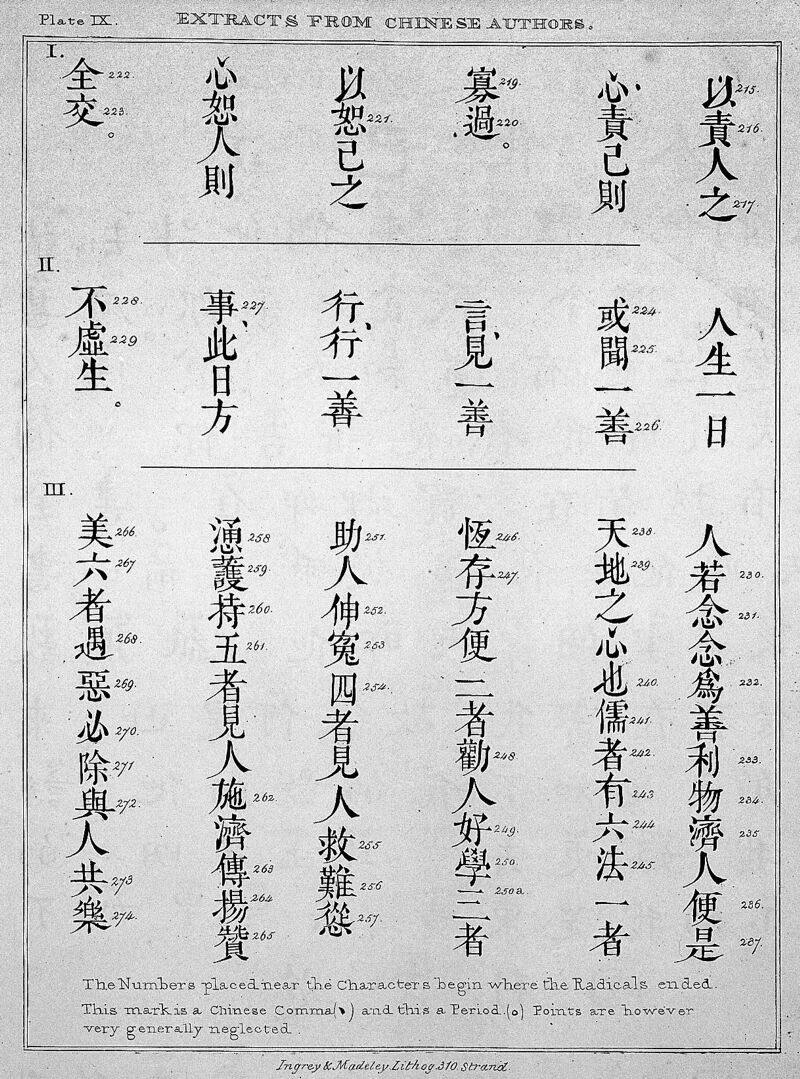 Plate IX. EXTRACTS FROM CHINESE AUTHORS.
I.
以責人之
215. 216. 217.
心、責己則
寡過。
219. 220.
以恕己之
221.
心恕人則
全交。
222. 223.
II.
人生一日
或聞一善
224. 225. 226.
言、見一善
行、行一善
事、此日方
227.
不虛生。
228. 229
III.
人若念念爲善利物濟人便是
230. 231. 232. 233. 234. 235 236. 237.
天地之心也儒者有六法一者
238. 239. 240. 241. 242. 243 244 245.
恆存方便二者勸人好學三者
246. 247. 248. 249. 250. 250a.
助人伸冤四者見人救難慫
251. 252. 253 254. 255 256 257.
慂護持五者見人施濟傳揚贊
258 259. 260. 261. 262. 263 264 265
美六者遇惡必除與人共樂
266. 267 268. 269. 270. 271 272. 273 274.
The Numbers placed near the Characters begin where the Radicals ended.
This mark is a Chinese Comma(、) and this a Period.(。) Points are however
very generally neglected.
Ingrey & Madeley Lithog. 310. Strand.